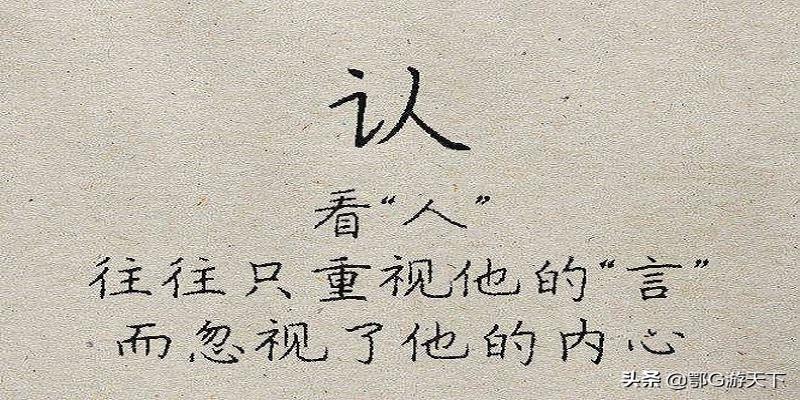 认
看“人”
往往只重视他的“言”
而忽视了他的内心
头条 @鄂G游天下